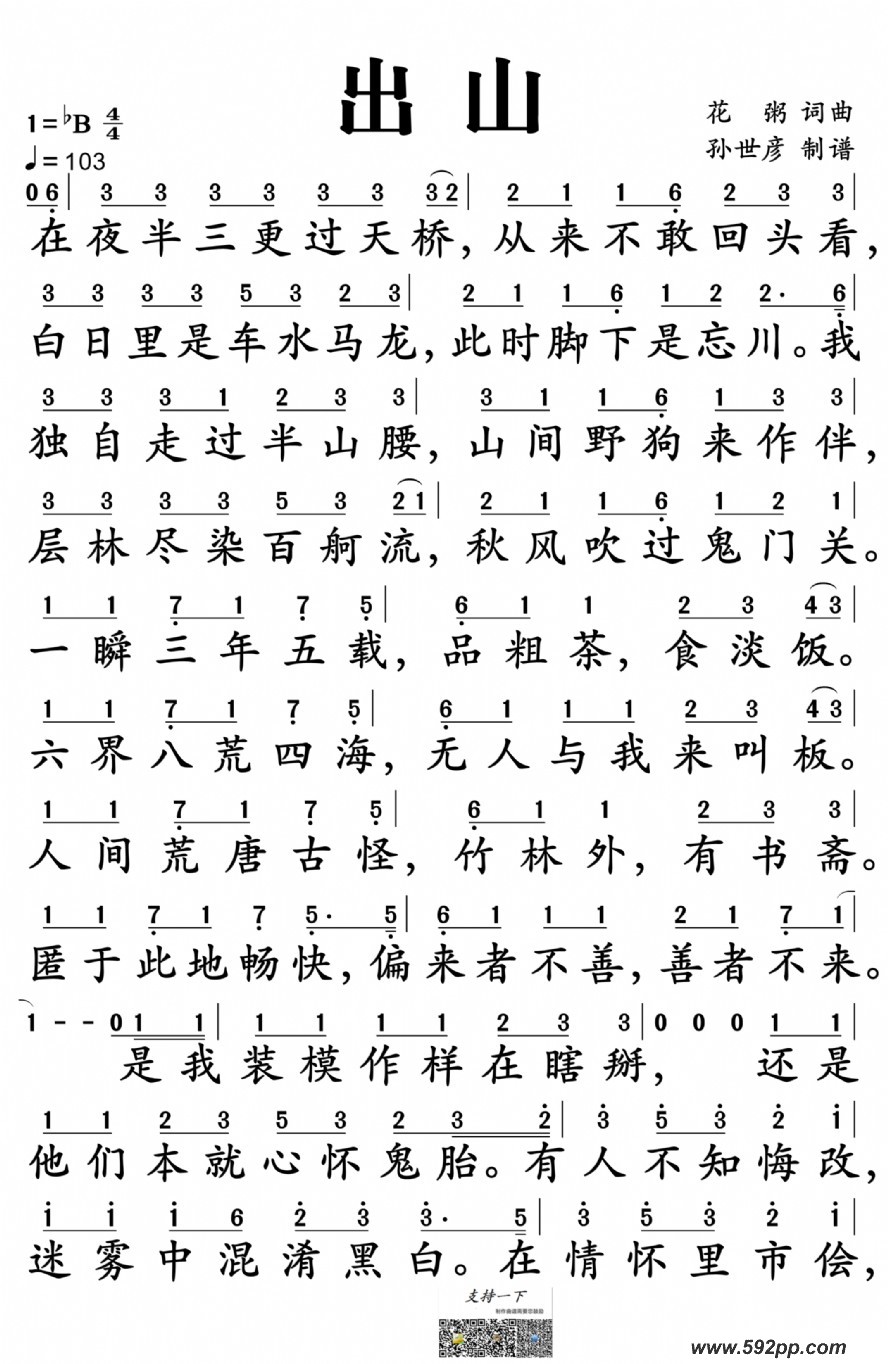 出山
1=♭B 4/4
♩=103
花 粥 词曲
孙世彦 制谱
0 6 | 3 3 3 3 3 3 3 32 | 2 1 1 6 2 3 3 |
在夜半三更过天桥，从来不敢回头看，
3 3 3 3 5 3 2 3 | 2 1 1 6 1 2 2· 6 |
白日里是车水马龙，此时脚下是忘川。我
3 3 3 1 2 3 3 | 3 1 1 6 1 3 3 |
独自走过半山腰，山间野狗来作伴，
3 3 3 3 5 3 21 | 2 1 1 6 1 2 1 |
层林尽染百舸流，秋风吹过鬼门关。
1 1 7 1 7 5 | 6 1 1 2 3 43 |
一瞬三年五载，品粗茶，食淡饭。
1 1 7 1 7 5 | 6 1 1 1 2 3 43 |
六界八荒四海，无人与我来叫板。
1 1 7 1 7 5 | 6 1 1 2 3 3 |
人间荒唐古怪，竹林外，有书斋。
1 1 7 1 7 5· 5 | 6 1 1 1 2 1 7 1 |
匿于此地畅快，偏来者不善，善者不来。
1 - - 0 1 1 | 1 1 1 1 2 3 3 | 0 0 0 1 1 |
是我装模作样在瞎掰，还是
1 1 2 3 5 3 2 3 2̇ | 3̇ 5̇ 3̇ 2̇ 1̇ |
他们本就心怀鬼胎。有人不知悔改，
1̇ 1̇ 1̇ 6 2̇ 3̇ 3̇· 5̇ | 3̇ 5̇ 3̇ 2̇ 1̇ |
迷雾中混淆黑白。在情怀里市侩，
支持一下
制作曲谱需要您鼓励
www.592pp.com